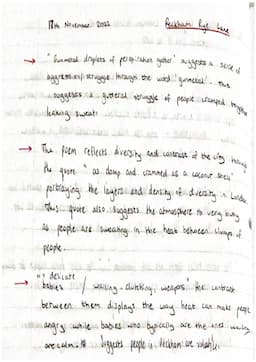 17th November 2022 Peckham Rye Lane
→ "Gunmetal droplets of perspiration gather" suggests a sense of
aggression/struggle through the word "gunmetal". This
suggests a struggle of people cramped together
leaking sweat.
→ The poem reflects diversity and contrast of the city through
the quote "as damp and crammed as a coconut shell"
portraying the layers and density of diversity in London
This quote also suggests the atmosphere is very busy
as people are sweating in the heat between clumps of
people.
→ "delicate
babies / waiting, clutching, weapons" the contrast
between them displays the way heat can make people
angry while babies who typically are the ones
are calm. suggests people in Peckham are valuable.